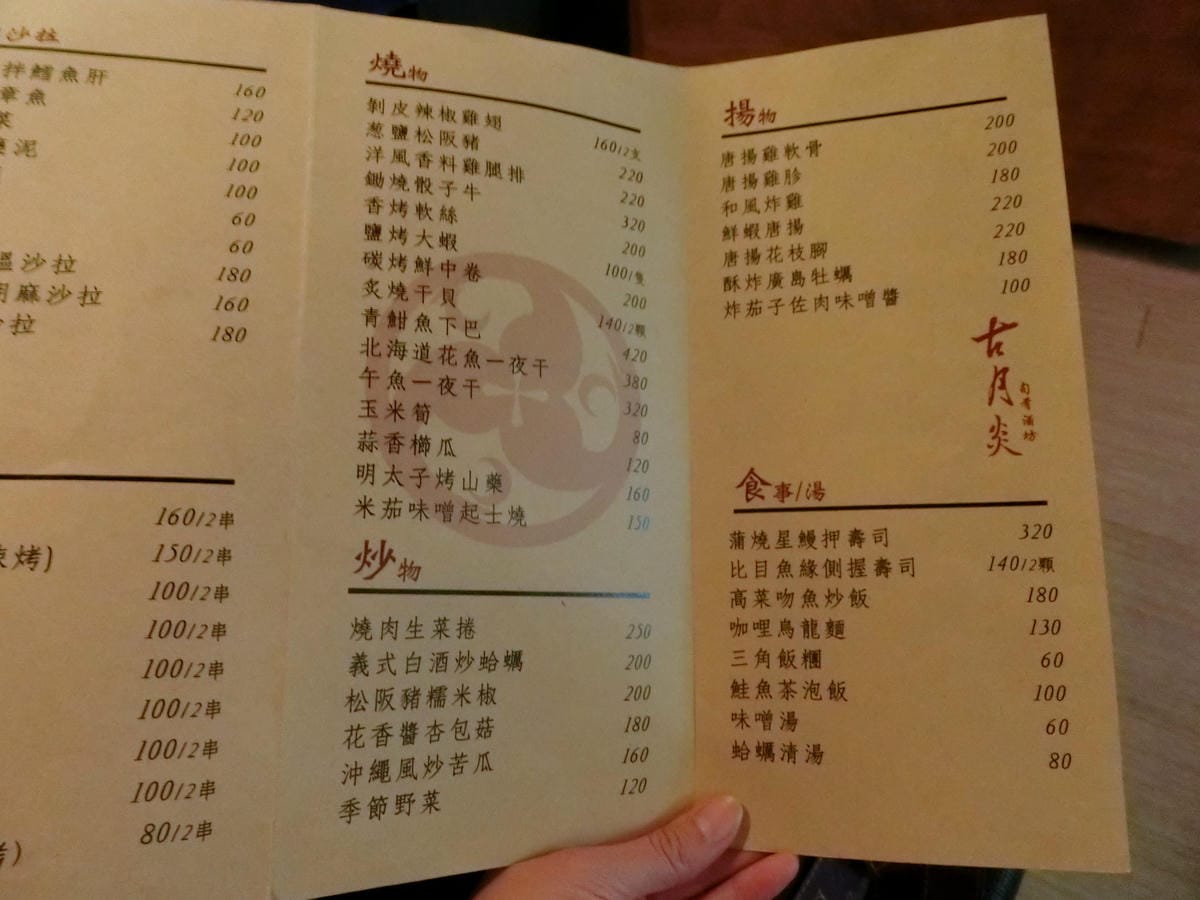 沙拉
拌鱈魚肝 160
章魚 120
菜 100
泥 100
100
60
60
溫沙拉 180
胡麻沙拉 160
沙拉 180
160/2串
烤) 150/2串
100/2串
100/2串
100/2串
100/2串
100/2串
100/2串
80/2串
)
燒物
剝皮辣椒雞翅 160/2支
蔥鹽松阪豬 220
洋風香料雞腿排 220
鋤燒骰子牛 320
香烤軟絲 200
鹽烤大蝦 100/隻
碳烤鮮中卷 200
炙燒干貝 140/2顆
青魽魚下巴 420
北海道花魚一夜干 380
午魚一夜干 320
玉米筍 80
蒜香櫛瓜 120
明太子烤山藥 160
米茄味噌起士燒 150
炒物
燒肉生菜捲 250
義式白酒炒蛤蠣 200
松阪豬糯米椒 200
花香醬杏包菇 180
沖繩風炒苦瓜 160
季節野菜 120
揚物
唐揚雞軟骨 200
唐揚雞胗 200
和風炸雞 180
鮮蝦唐揚 220
唐揚花枝腳 220
酥炸廣島牡蠣 180
炸茄子佐肉味噌醬 100
古月炎
旬肴酒坊
食事/湯
蒲燒星鰻押壽司 320
比目魚緣側握壽司 140/2顆
高菜吻魚炒飯 180
咖哩烏龍麵 130
三角飯糰 60
鮭魚茶泡飯 100
味噌湯 60
蛤蠣清湯 80